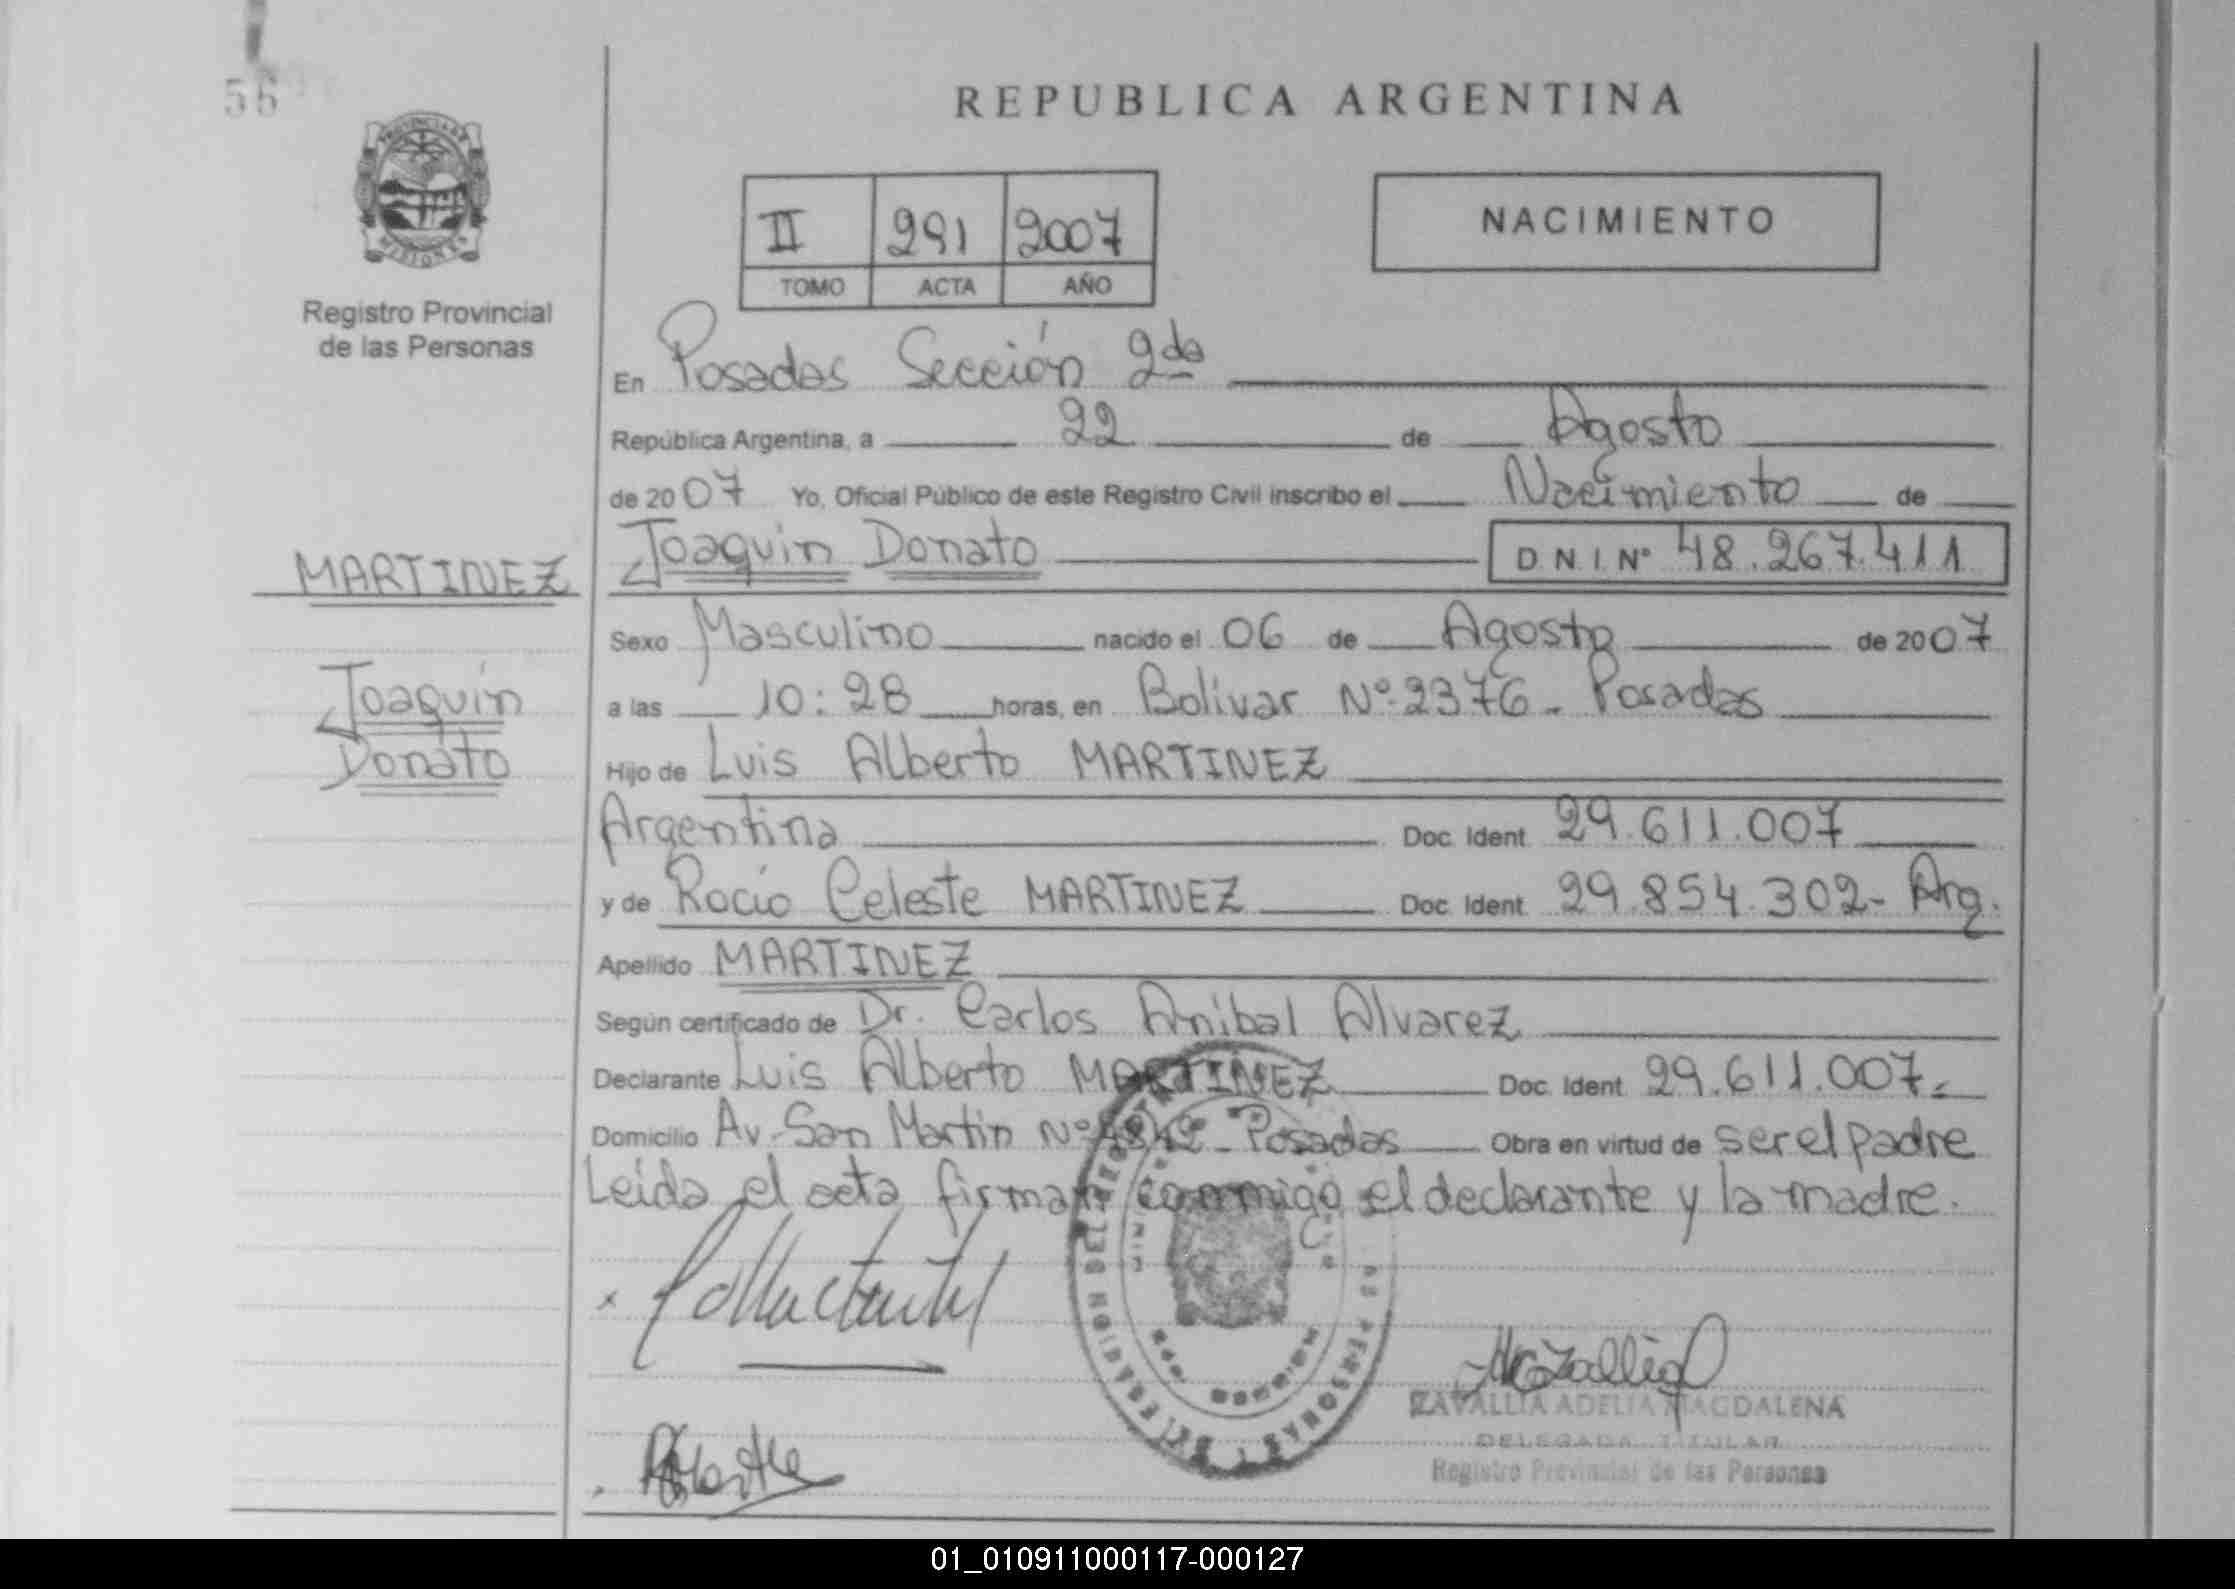 56
REPUBLICA ARGENTINA
PROVINCIA DE
MISIONES
Registro Provincial
de las Personas
II 291 2007
TOMO ACTA AÑO
NACIMIENTO
En Posadas Sección 2da
República Argentina, a 22 de Agosto
de 2007 Yo, Oficial Público de este Registro Civil inscribo el Nacimiento de
MARTINEZ Joaquín Donato D.N.I. Nº 48.267.411
Sexo Masculino nacido el 06 de Agosto de 2007
Joaquín
Donato
a las 10:28 horas, en Bolivar Nº 2376 - Posadas
Hijo de Luis Alberto MARTINEZ
Argentina Doc. Ident. 29.611.007
y de Rocío Celeste MARTINEZ Doc. Ident. 29.854.302- Arg.
Apellido MARTINEZ
Según certificado de Dr. Carlos Anibal Alvarez
Declarante Luis Alberto MARTINEZ Doc. Ident. 29.611.007.-
Domicilio Av. San Martin Nº - Posadas Obra en virtud de ser el padre
Leída el acta firman conmigo el declarante y la madre.
ZAVALLIA ADELIA MAGDALENA
DELEGADA TITULAR
Registro Provincial de las Personas
01_010911000117-000127